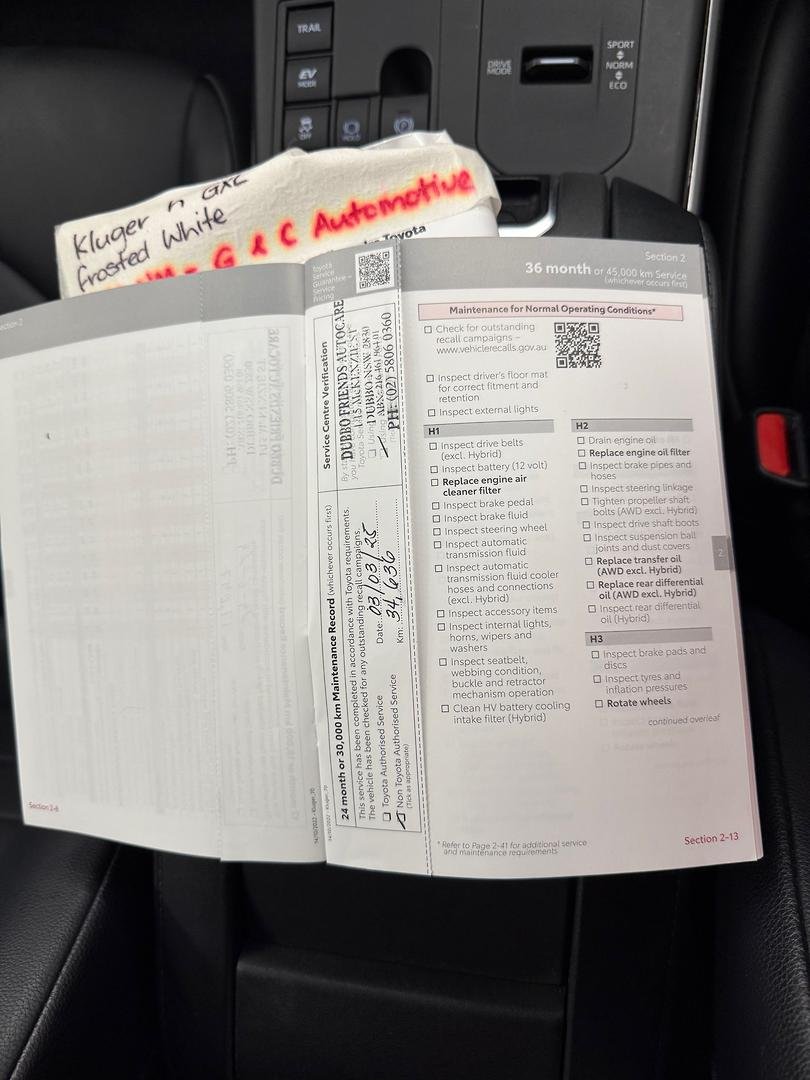 TRAIL
EV
MODE
OFF
HOLD
DRIVE
MODE
SPORT
NORM
ECO
Kluger n GXL
Frosted White
G & C Automotive
Toyota
Section 2-6
Toyota
Service
Guarantee –
Service
Pricing
Service Centre Verification
DUBBO FRIENDS AUTOCARE
DUBBO NSW 2830
PH: (02) 5806 0360
24 month or 30,000 km Maintenance Record (whichever occurs first)
This service has been completed in accordance with Toyota requirements.
The vehicle has been checked for any outstanding recall campaigns.
Toyota Authorised Service
Date: 03/03/25
Non Toyota Authorised Service
Km: 34,636
(Tick as appropriate)
Section 2
36 month or 45,000 km Service
(whichever occurs first)
Maintenance for Normal Operating Conditions*
Check for outstanding
recall campaigns –
www.vehiclerecalls.gov.au
Inspect driver's floor mat
for correct fitment and
retention
Inspect external lights
H1
Inspect drive belts
(excl. Hybrid)
Inspect battery (12 volt)
Replace engine air
cleaner filter
Inspect brake pedal
Inspect brake fluid
Inspect steering wheel
Inspect automatic
transmission fluid
Inspect automatic
transmission fluid cooler
hoses and connections
(excl. Hybrid)
Inspect accessory items
Inspect internal lights,
horns, wipers and
washers
Inspect seatbelt,
webbing condition,
buckle and retractor
mechanism operation
Clean HV battery cooling
intake filter (Hybrid)
H2
Drain engine oil
Replace engine oil filter
Inspect brake pipes and
hoses
Inspect steering linkage
Tighten propeller shaft
bolts (AWD excl. Hybrid)
Inspect drive shaft boots
Inspect suspension ball
joints and dust covers
Replace transfer oil
(AWD excl. Hybrid)
Replace rear differential
oil (AWD excl. Hybrid)
Inspect rear differential
oil (Hybrid)
H3
Inspect brake pads and
discs
Inspect tyres and
inflation pressures
Rotate wheels
continued overleaf
2
* Refer to Page 2-41 for additional service
and maintenance requirements
Section 2-13